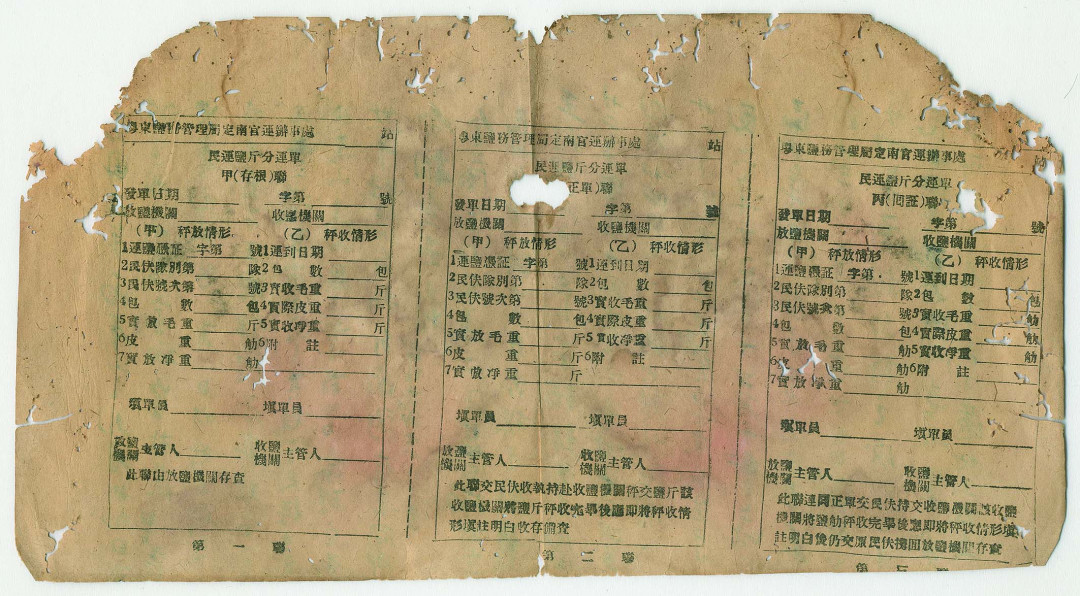 粵東鹽務管理局定南官運辦事處 站
民運鹽斤分運單
甲(存根)聯
發單日期 字第 號
收鹽機關 收鹽機關
(甲) 秤放情形 (乙) 秤收情形
1運鹽憑証 字第 號1運到日期
2民伕隊別第 隊2包 數 包
3民伕號次第 號3實收毛重 斤
4包 數 包4實際皮重 斤
5實放毛重 斤5實收淨重 斤
6皮 重 觔6附 註
7實放淨重 觔
塡單員 塡單員
放鹽機關主管人 收鹽機關主管人
此聯由放鹽機關存查
第一聯
粵東鹽務管理局定南官運辦事處 站
民運鹽斤分運單
正單)聯
發單日期 字第 號
放鹽機關 收鹽機關
(甲) 秤放情形 (乙) 秤收情形
1運鹽憑証 字第 號1運到日期
2民伕隊別第 隊2包 數 包
3民伕號次第 號3實收毛重 斤
4包 數 包4實際皮重 斤
5實放毛重 斤5實收淨重 斤
6皮 重 斤6附 註
7實放淨重 斤
塡單員 塡單員
放鹽機關主管人 收鹽機關主管人
此聯交民伕收執持赴收鹽機關秤交鹽斤該
收鹽機關將鹽斤秤收完畢後應即將秤收情
形塡註明白收存備查
第二聯
粵東鹽務管理局定南官運辦事處
民運鹽斤分運單
丙(回証)聯
發單日期 字第 號
放鹽機關 收鹽機關
(甲) 秤放情形 (乙) 秤收情形
1運鹽憑証 字第 號1運到日期
2民伕隊別第 隊2包 數 包
3民伕號次第 號3實收毛重 觔
4包 數 包4實際皮重 觔
5實放毛重 觔5實收淨重 觔
6皮 重 觔6附 註
7實放淨重 觔
塡單員 塡單員
放鹽機關主管人 收鹽機關主管人
此聯連同正單交民伕持交收鹽機關該收鹽
機關將鹽觔秤收完畢後應即將秤收情形塡
註明白後仍交原民伕攜回放鹽機關存查